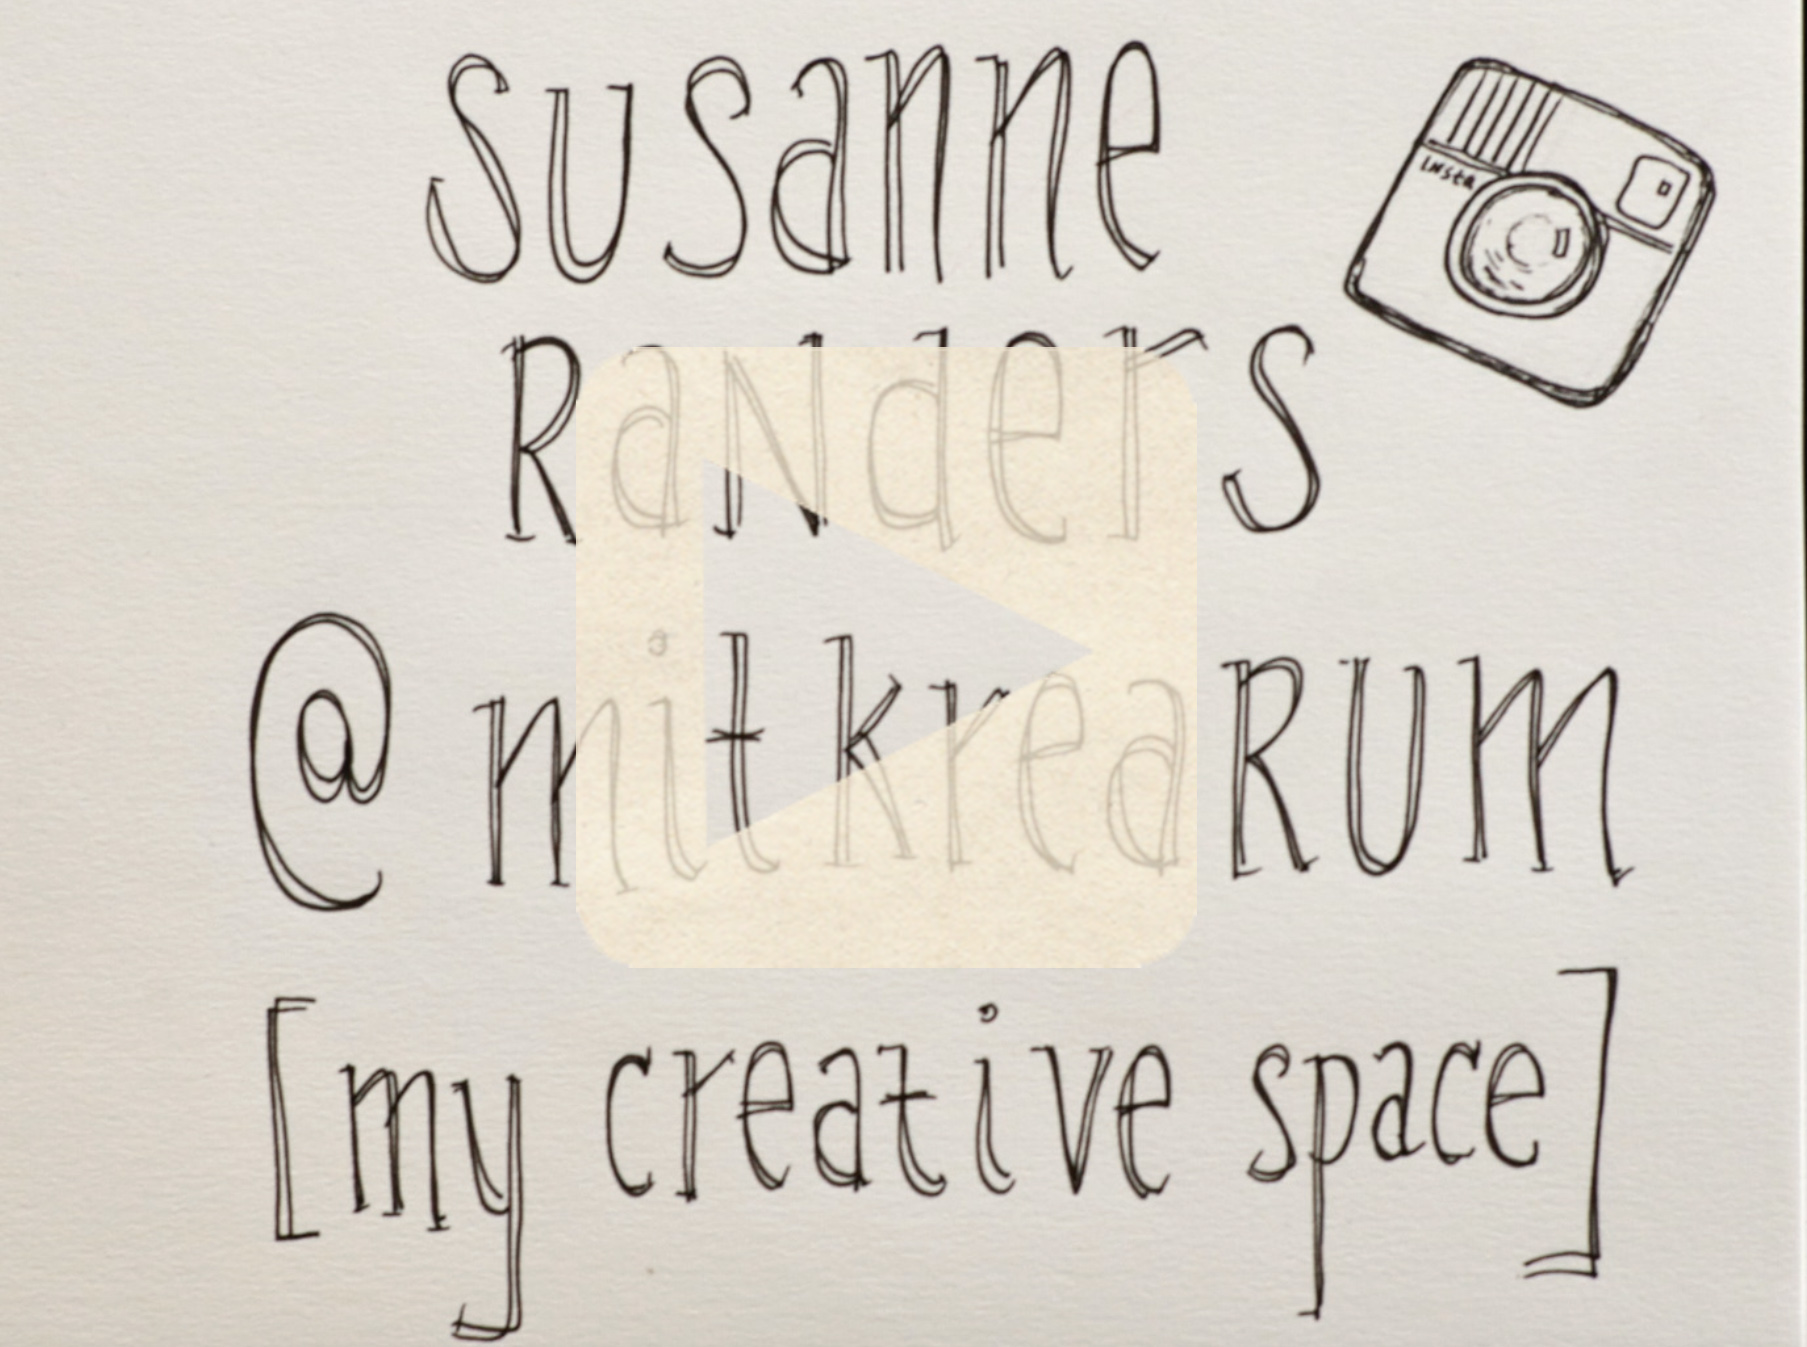 susanne
Insta
RaNders
@mitkreaRUM
[my creative space]